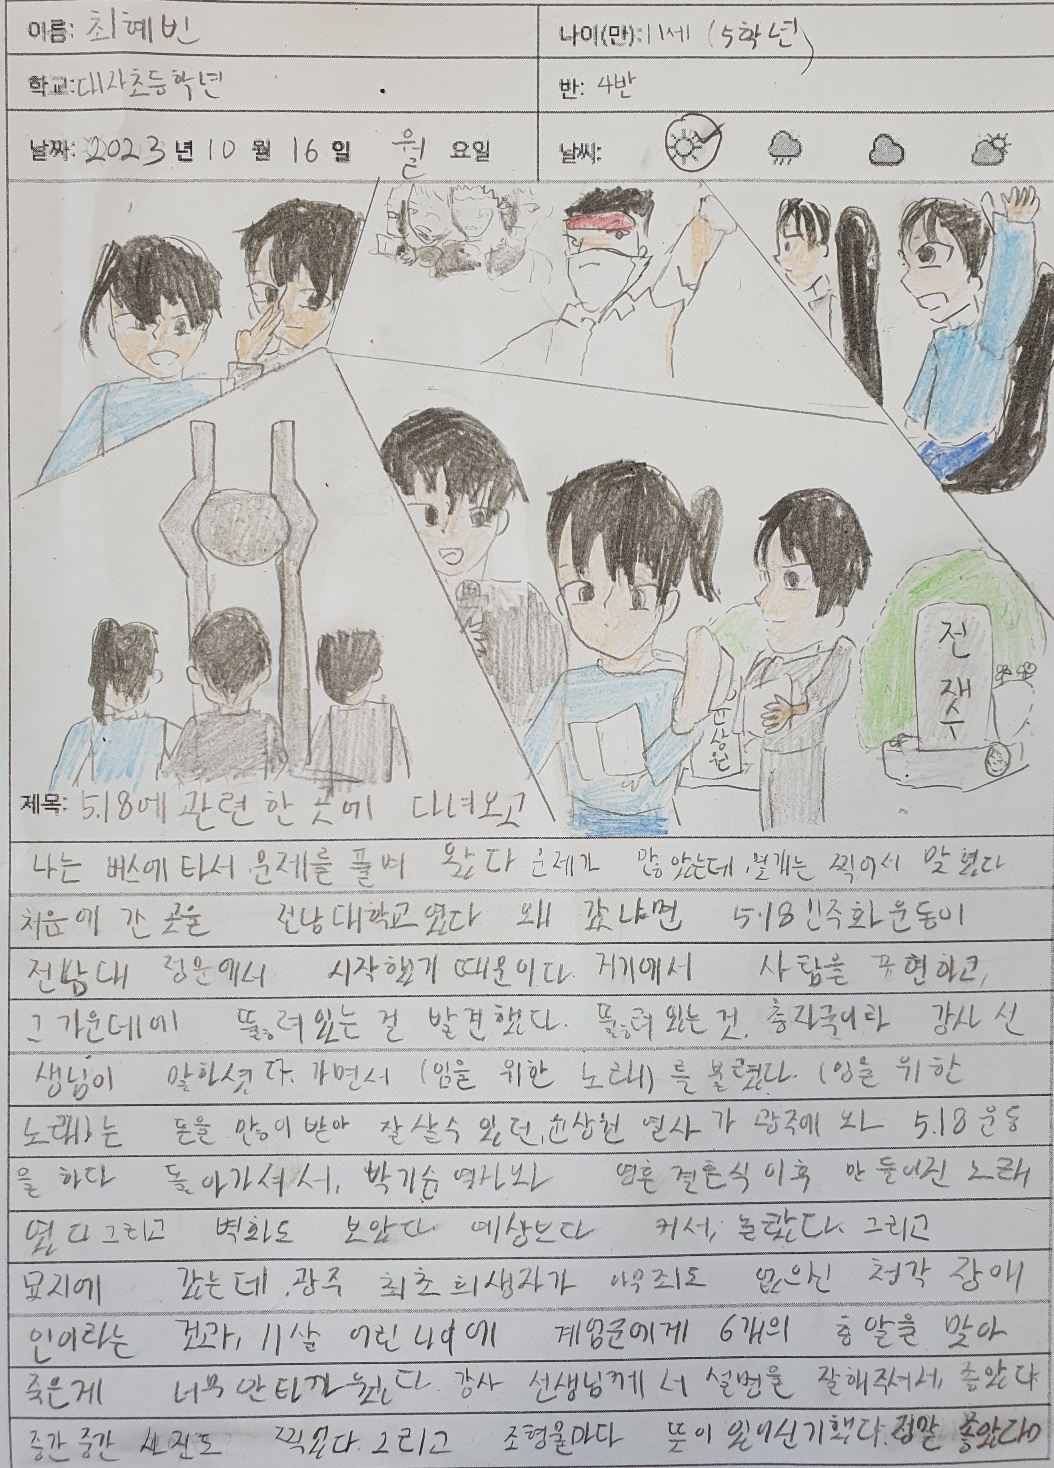 이름: 최혜빈
나이(만): 11세 (5학년)
학교: 대자초등학년
반: 4반
날짜: 2023년 10월 16일 월요일
날씨:
전재수
윤상원
제목: 5.18에 관련한 곳에 다녀오고
나는 버스에 타서 문제를 풀며 왔다 문제가 많았는데, 몇개는 찍어서 맞혔다
처음에 간 곳은 전남대학교였다 왜 갔냐면 5.18 민주화운동이
전남대 정문에서 시작했기 때문이다. 거기에서 사람을 표현하고,
그 가운데에 뚫려있는 걸 발견했다. 뚫려 있는 것, 총자국이라 강사 선
생님이 말하셨다. 가면서 (임을 위한 노래)를 불렀다. (임을 위한
노래)는 돈을 많이 받아 잘 살 수 있던, 윤상원 열사가 광주에 와 5.18 운동
을 하다 돌아가셔서, 박기순 열사와 영혼결혼식 이후 만들어진 노래
였다 그리고 벽화도 보았다 예상보다 커서, 놀랐다. 그리고
묘지에 갔는데, 광주 최초 희생자가 아무죄도 없으신 청각 장애
인이라는 것과, 11살 어린 나이에 계엄군에게 6개의 총알을 맞아
죽은게 너무 안타까웠다. 강사 선생님께서 설명을 잘해주셔서, 좋았다
중간중간 사진도 찍었다. 그리고 조형물마다 뜻이 있어 신기했다. 정말 좋았다